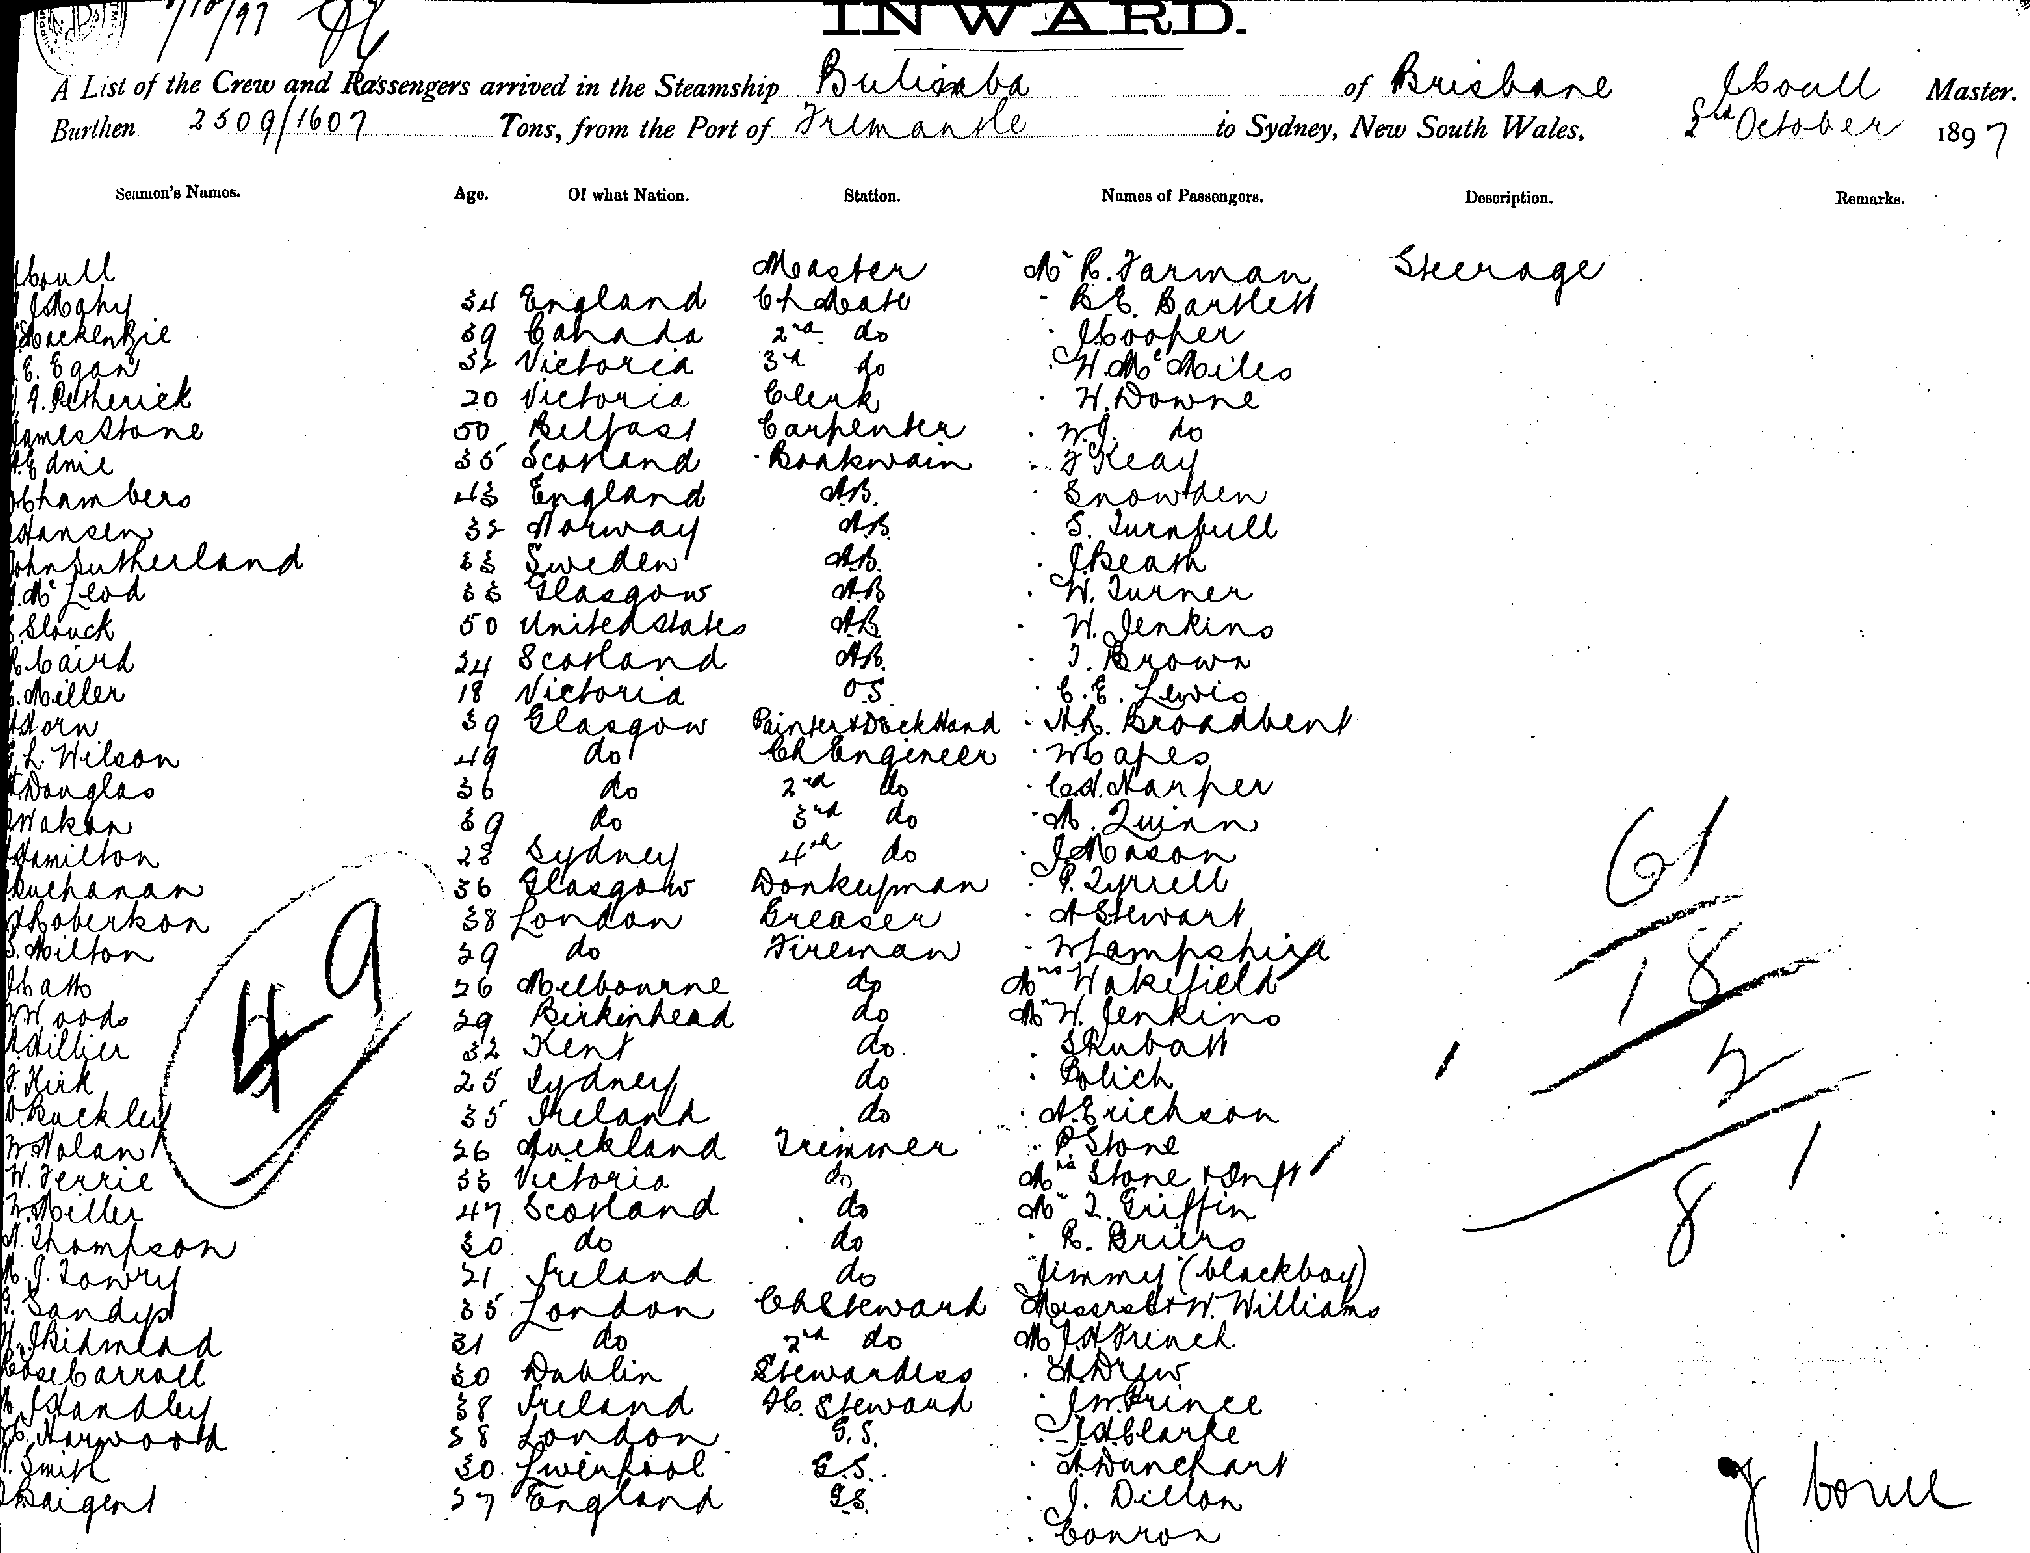 INWARD.
A List of the Crew and Passengers arrived in the Steamship Bulimba of Brisbane J Coull Master.
Burthen 2509/1607 Tons, from the Port of Fremantle to Sydney, New South Wales, October 1897
Seamen's Names. Age. Of what Nation. Station. Names of Passengers. Description. Remarks.
J Coull Master Mr R. Farman Steerage
34 England Ch Mate " B E. Bartlett
Mackenzie 39 Canada 2nd do " J Cooper
E. Egan 32 Victoria 3rd do " W. Mc Miles
A. Petherick 20 Victoria Clerk " W. Downe
James Stone 50 Belfast Carpenter " W.J. do
Ednie 35 Scotland Boatswain " F Keay
Chambers 43 England AB. " Snowden
Hansen 32 Norway AB. " S. Turnbull
John Sutherland 33 Sweden AB. " J Beath
Mc Leod 33 Glasgow AB " W. Turner
Slouck 50 United States AB " W. Jenkins
Caird 24 Scotland AB. " T. Brown
Miller 18 Victoria OS. " C. E. Lewis
Horn 39 Glasgow Painter & Deck Hand " H.R. Broadbent
L. Wilson 49 do Ch Engineer " W Capes
Douglas 36 do 2nd do " C.H. Harper
39 do 3rd do " M. Quinn
Hamilton 28 Sydney 4th do " J Mason
Buchanan 36 Glasgow Donkeyman " P. Tyrrell
Robertson 38 London Greaser " A Stewart
S. Milton 29 do Fireman " W Lampshird
J Catts 26 Melbourne do Mrs Wakefield
W Woods 29 Birkinhead do Mr W. Jenkins
Hillier 32 Kent do. " S Rubatt
F. Kirk 25 Sydney do " Polich
D. Buckley 35 Ireland do " A Erichson
W Nolan 26 Auckland Trimmer " P. Stone
W. Ferrie 33 Victoria do Mrs Stone & Inft
W. Miller 47 Scotland do Mr T. Griffin
A. Thompson 30 do do " R. Briers
M. J. Lowry 21 Ireland do " Jimmy (blackboy)
G. Sandys 35 London Ch Steward Messrs W. Williams
Skidmead 31 do 2nd do Mr J.H. French
Rose Carroll 30 Dublin Stewardess " H Drew
J Handley 38 Ireland F.C. Steward " J W. Prince
Harwood 38 London G.S. " J H Clarke
Smith 30 Liverpool G.S. " A Dunchart
Baigent 27 England G.S. " J. Dillon
" Conron
49
61
18
2
81
J Coull